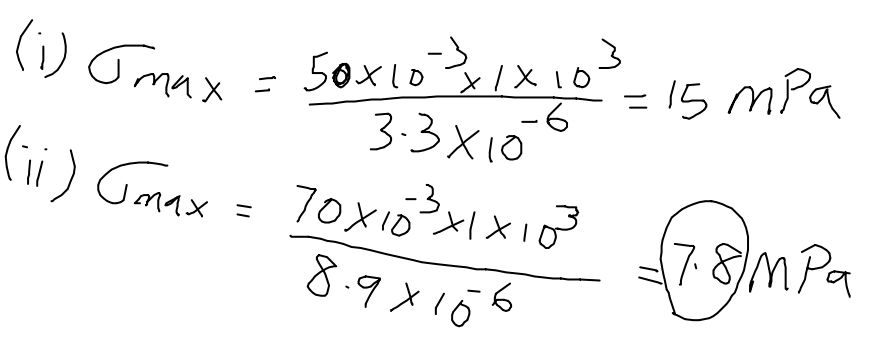 (i) σmax = 50×10⁻³×1×10³ / 3.3×10⁻⁶ = 15 mPa
(ii) σmax = 70×10⁻³×1×10³ / 8.9×10⁻⁶ = 7.8 MPa